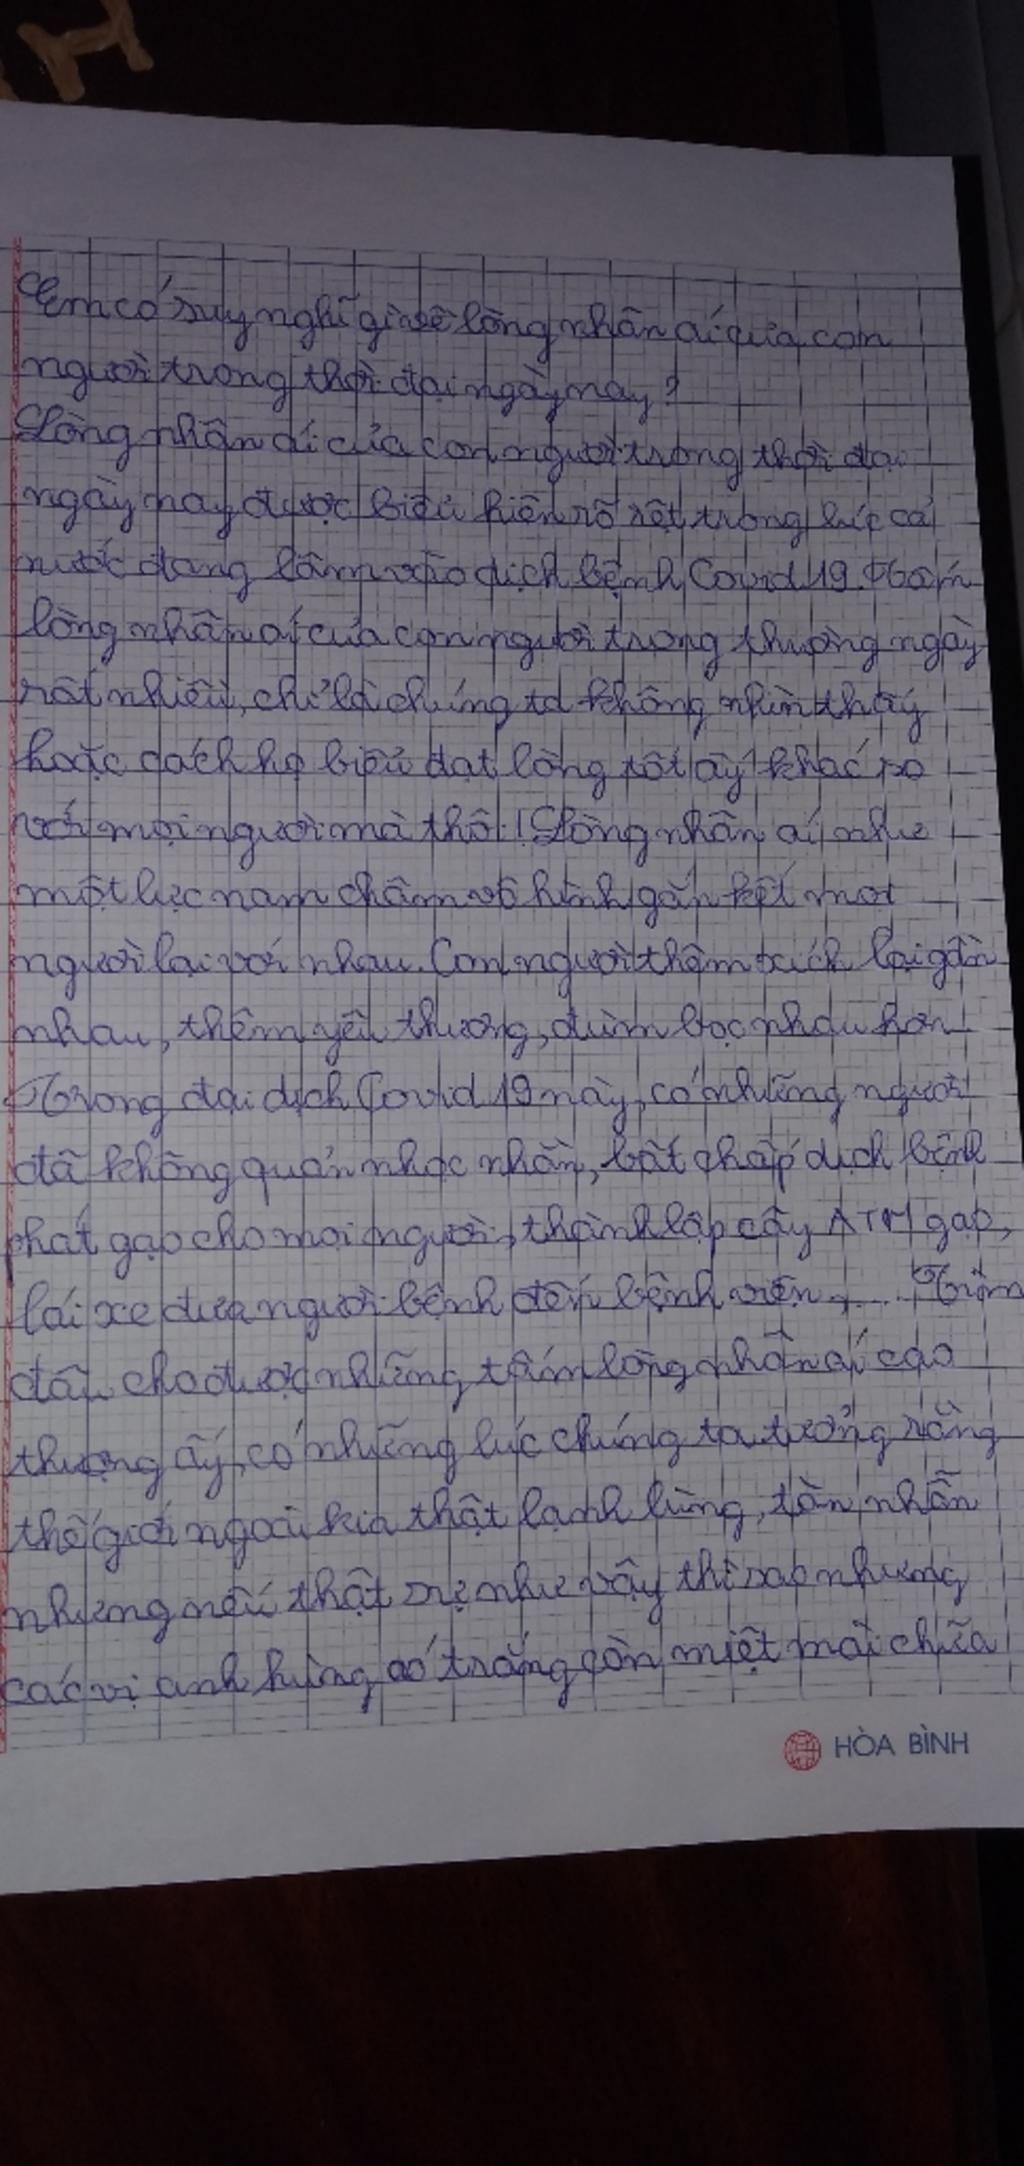 Em có suy nghĩ gì về lòng nhân ái của con
người trong thời đại ngày nay?
Lòng nhân ái của con người trong thời đại
ngày nay được biểu hiện rõ rệt trong lúc cả
nước đang lâm vào dịch bệnh Covid 19. Thật
lòng nhân ái của con người trong thường ngày
rất nhiều, chỉ là chúng ta không nhìn thấy
hoặc cách họ biểu đạt lòng tốt ấy khác so
với mọi người mà thôi! Lòng nhân ái như
một lực nam châm vô hình gắn kết mọi
người lại với nhau. Con người thêm xích lại gần
nhau, thêm yêu thương, đùm bọc nhau hơn
Trong đại dịch Covid 19 này, có những người
đã không quản nhọc nhằn, bất chấp dịch bệnh
phát gạo cho mọi người, thành lập cây ATM gạo,
lái xe đưa người bệnh đến bệnh viện,.... Tìm
đâu cho được những tấm lòng nhân ái cao
thượng ấy, có những lúc chúng ta tưởng rằng
thế giới ngoài kia thật lạnh lùng, tàn nhẫn
nhưng nếu thật sự như vậy thì sao nhưng
các vị anh hùng áo trắng còn miệt mài chữa
HÒA BÌNH